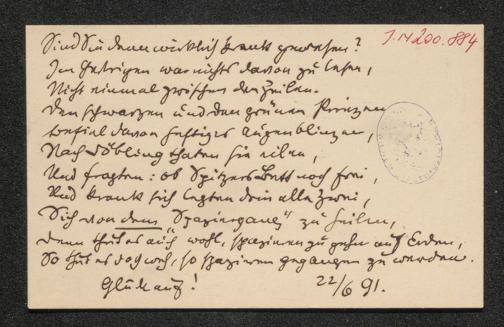 J. N 200.884
Sind Sie denn wirklich krank gewesen?
Im Gestrigen war nichts davon zu lesen,
Nicht einmal zwischen den Zeilen.
Den schwarzen und den grünen Prinzen
befiel davon heftiges Augenblinzen,
Nach Döbling thaten sie eilen,
Und fragten: ob Spitzers Bett noch frei,
Und krank sich legten drin alle zwei,
Sich von dem „Spaziergang“ zu heilen,
Denn thut es auch wohl, spazieren zu gehn auf Erden,
So thut es doch weh, so spazieren gegangen zu werden.
Glück auf! 22/6 91.